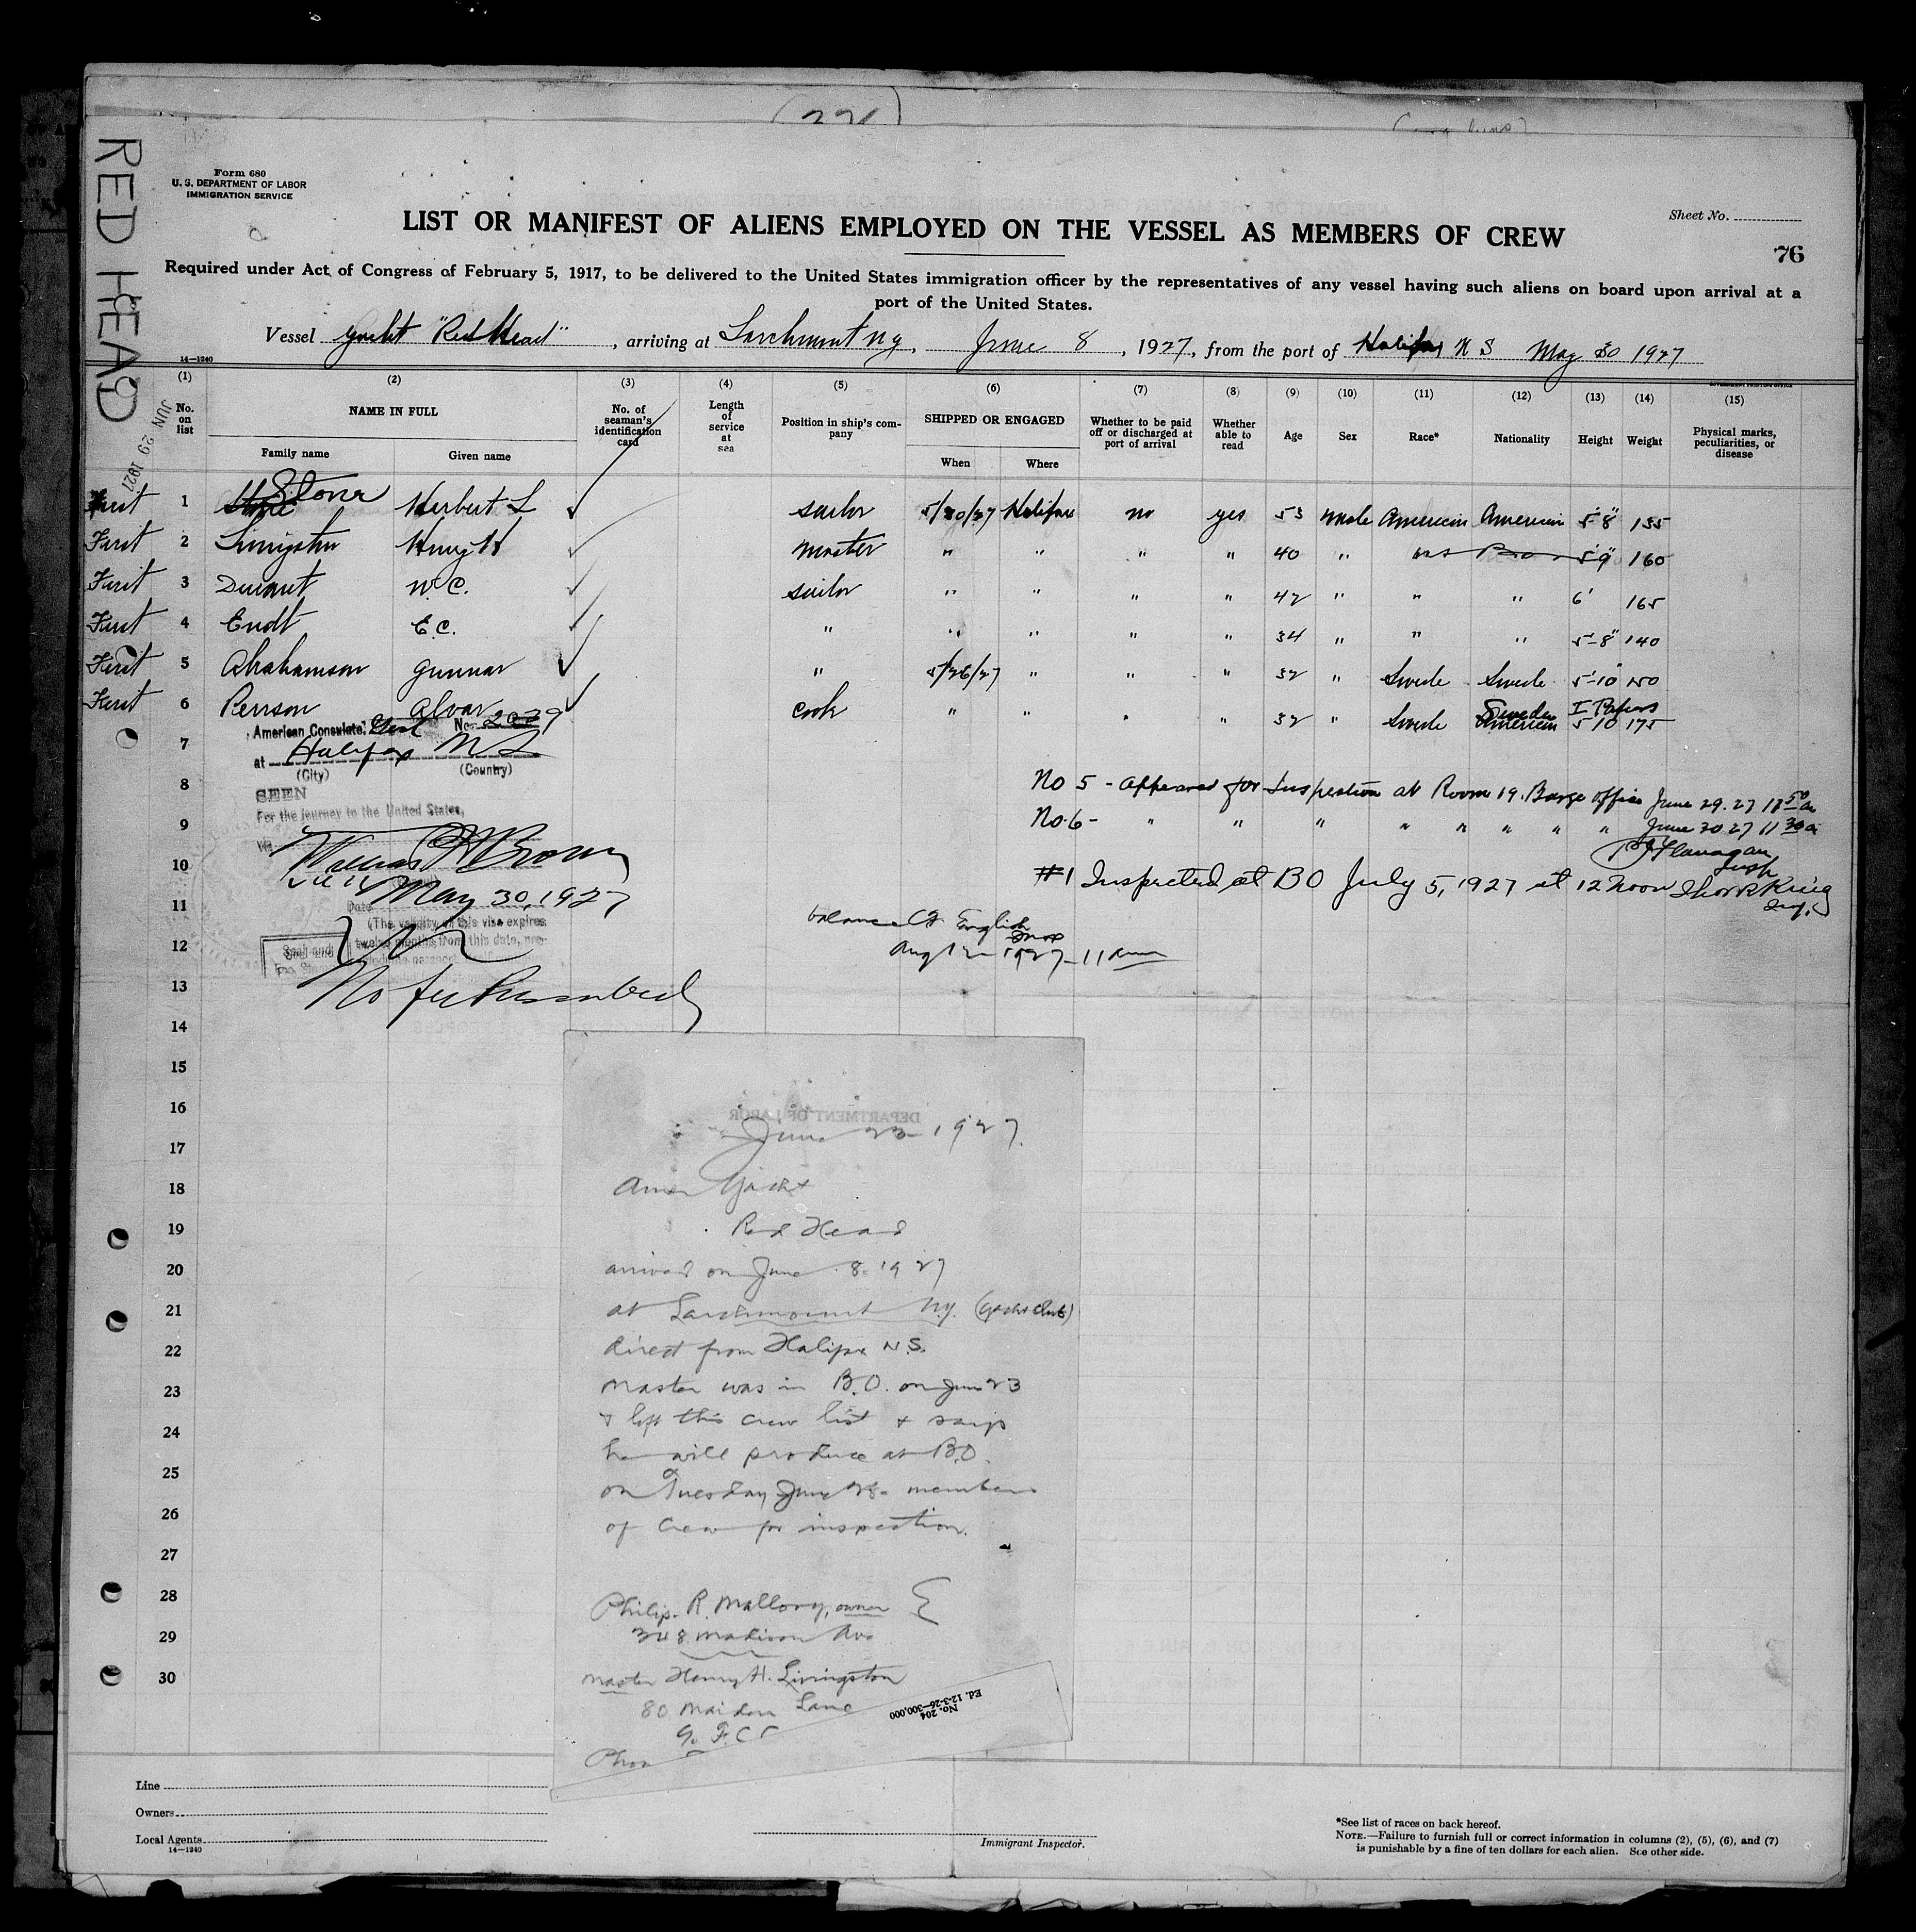 (221)
RED HEAD
JUN 29 1927
Form 680
U. S. DEPARTMENT OF LABOR
IMMIGRATION SERVICE
Sheet No.
76
LIST OR MANIFEST OF ALIENS EMPLOYED ON THE VESSEL AS MEMBERS OF CREW
Required under Act of Congress of February 5, 1917, to be delivered to the United States immigration officer by the representatives of any vessel having such aliens on board upon arrival at a
port of the United States.
Vessel Yacht "Red Head", arriving at Larchmont NY, June 8, 1927, from the port of Halifax N S May 30 1927
14—1240
(1) (2) (3) (4) (5) (6) (7) (8) (9) (10) (11) (12) (13) (14) (15)
No. on list
NAME IN FULL
Family name
Given name
No. of seaman's identification card
Length of service at sea
Position in ship's company
SHIPPED OR ENGAGED
When
Where
Whether to be paid off or discharged at port of arrival
Whether able to read
Age
Sex
Race*
Nationality
Height
Weight
Physical marks, peculiarities, or disease
First 1 Stone Herbert L sailor 5/30/27 Halifax no yes 53 male American American 5'8" 155
First 2 Livingston Henry H master " " " " 40 " " 5'9" 160
First 3 Durant W.C. sailor " " " " 42 " " " 6' 165
First 4 Endt E.C. " " " " " 34 " " " 5-8" 140
First 5 Abrahamson Gunnar " 5/26/27 " " " 32 " Swede Swede 5'-10" 150
First 6 Persson Alvar cook " " " " 32 " Swede American Sweden I Papers 5 10 175
American Consulate Genl No. 2029
7
at Halifax N S
(City) (Country)
8
SEEN
For the journey to the United States,
No 5 - Appeared for Inspection at Room 19. Barge Office June 29. 27 11 50 a
9
No. 6 - " " " " " " " " June 30 27 11 30 a
Flanagan
Insp
10
#1 Inspected at BO July 5, 1927 at 12 Noon
King
Insp.
May 30, 1927
Date
11
(The validity of this visa expires
twelve months from this date,
balance English
12
Seal and
Aug 12 1927 - 11 am
13
No fee Prescribed
14
15
16
DEPARTMENT OF LABOR
June 23 - 1927.
17
18
Amer Yacht
19
Red Head
20
arrived on June 8. 1927
21
at Larchmount N.Y. (Yacht Club)
22
direct from Halifax N.S.
23
master was in B.O. on June 23
24
& left this crew list & says
he will produce at B.O.
25
on Tuesday June 28 - members
26
of crew for inspection.
27
28
Philip. R. Mallory, owner
29
348 Madison Ave
30
master Henry H. Livingston
80 Maiden Lane
No. 204
Ed. 12-3-26—300,000
Line
Owners
Local Agents
14—1240
Immigrant Inspector.
*See list of races on back hereof.
NOTE.—Failure to furnish full or correct information in columns (2), (5), (6), and (7)
is punishable by a fine of ten dollars for each alien. See other side.